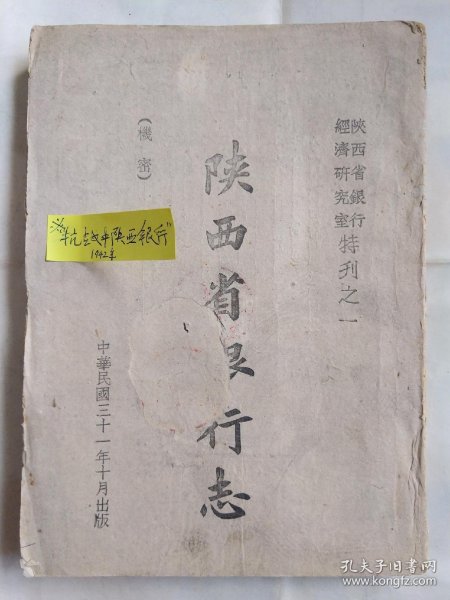 陝西省銀行
經濟研究室
特刊之一
陝西省銀行志
(機密)
中華民國三十一年十月出版
"抗战中陕西银行"
1942年
孔夫子旧书网
www.kongfz.com